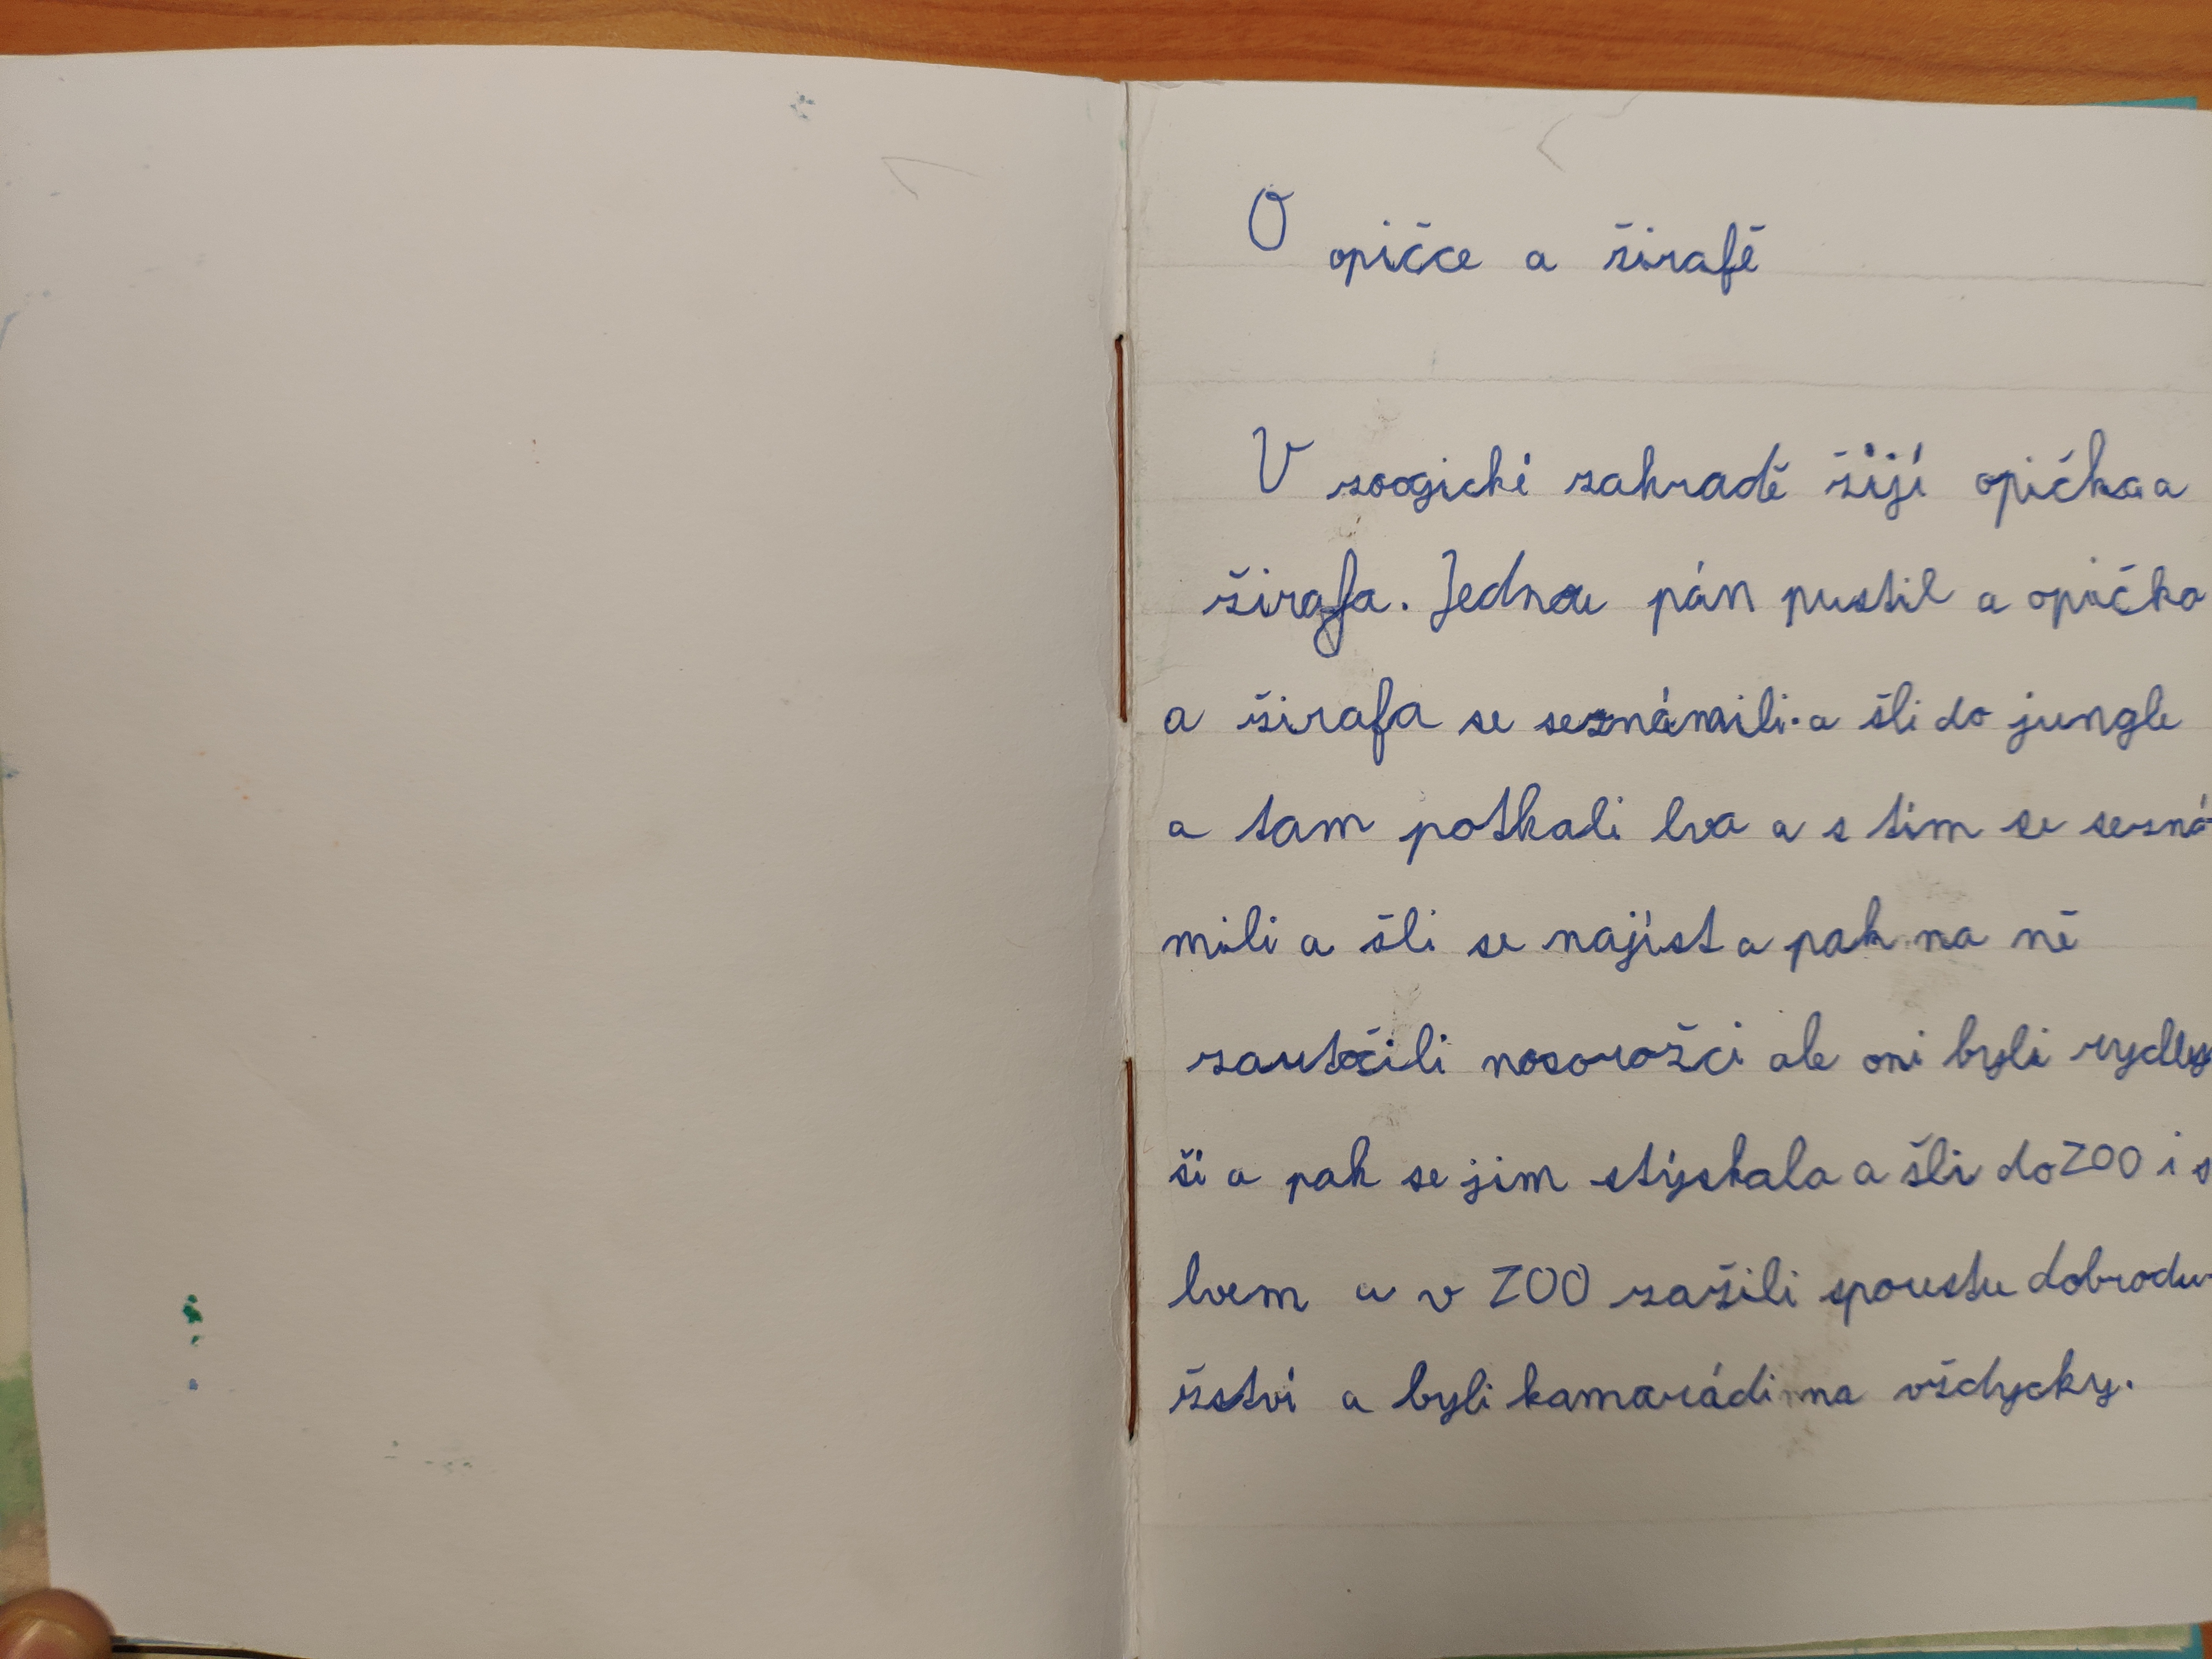 O opičce a žirafě
V zoogické zahradě žijí opička a
žirafa. Jednou pán pustil a opička
a žirafa se seznámili. a šli do jungle
a tam potkali lva a s tím se sezná
mili a šli se najíst a pak na ně
zaútočili nosorožci ale oni byli rydly
ší a pak se jim stýskala a šli do ZOO i s
lvem a v ZOO zažili spoustu dobrodu-
žství a byli kamarádi na vždycky.